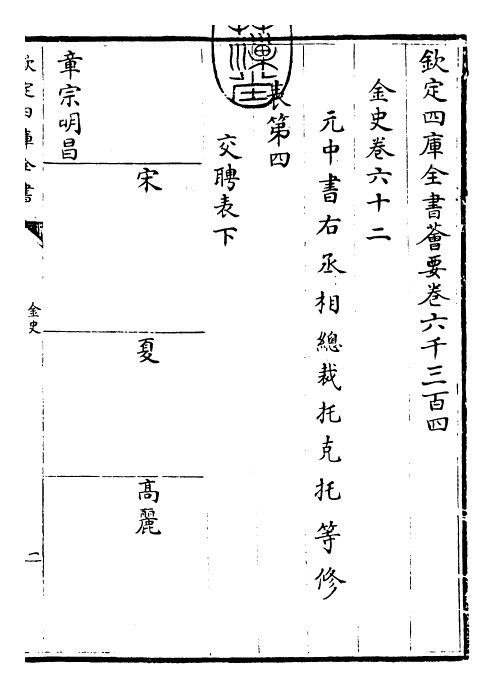 欽定四庫全書薈要卷六千三百四
金史卷六十二
元中書右丞相總裁托克托等修
表第四
交聘表下
宋
夏
高麗
章宗明昌
欽定四庫全書
金史
二